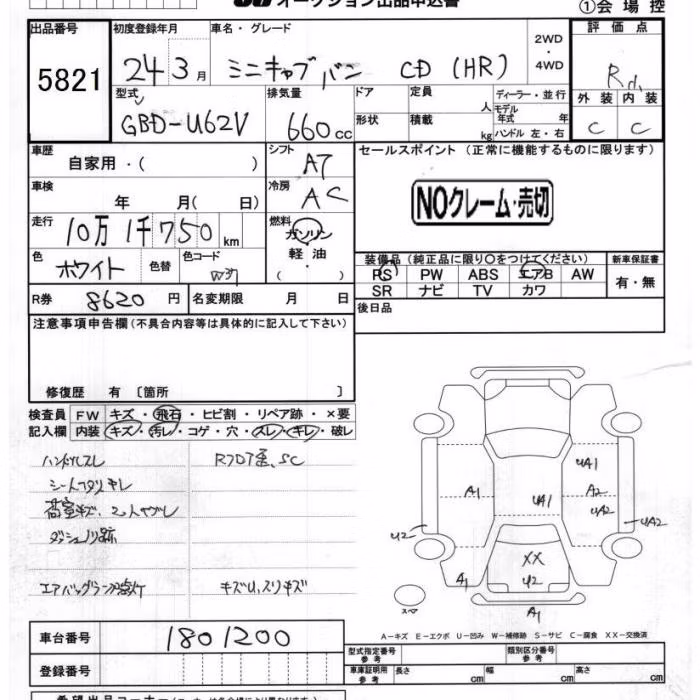 オークション出品申込書
①会場控
出品番号 初度登録年月 車名・グレード 評価点
5821 24年3月 ミニキャブバン CD (HR) 2WD・4WD R
型式 排気量 ドア 定員 人 ディーラー・並行 外装 内装
GBD-U62V 660cc 形状 積載 kg モデル年式 年 ハンドル 左・右 C C
車歴 自家用・( ) シフト AT セールスポイント (正常に機能するものに限ります)
車検 年 月( 日) 冷房 AC NOクレーム・売切
走行 10万1千750km 燃料 ガソリン 軽油 ( )
色 ホワイト 色替 色コード W37
装備品(純正品に限り○をつけてください) 新車保証書
PS PW ABS エアB AW 有・無
SR ナビ TV カワ
R券 8620円 名変期限 月 日 後日品
注意事項申告欄(不具合内容等は具体的に記入して下さい)
修復歴 有 〔箇所 〕
検査員 FW キズ・飛石・ヒビ割・リペア跡・×要
記入欄 内装 キズ・汚レ・コゲ・穴・スレ・キレ・破レ
ハンドルスレ
シートヘタリキレ
荷室キズ
エアバッグランプ点灯 キズU、スリキズ
UA1
A1 UA1 A2
UA2
U2 UA2
XX
U2
A1
スペア
A1
A-キズ E-エクボ U-凹み W-補修跡 S-サビ C-腐食 XX-交換済
車台番号 1801200
登録番号
型式指定番号 参考 類別区分番号 参考
車庫証明用 参考 長さ cm 幅 cm 高さ cm